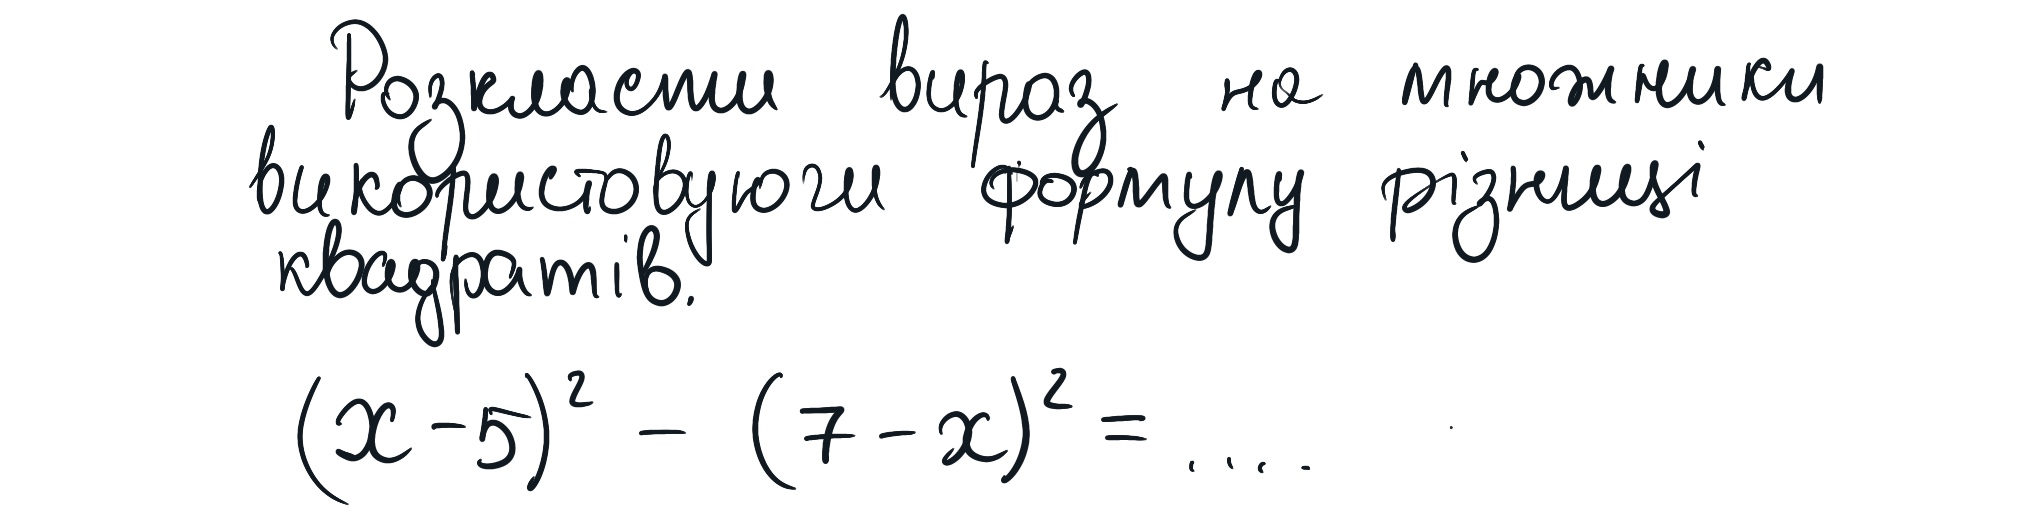 Розкласти вираз на множники
використовуючи формулу різниці
квадратів.
(x - 5)² - (7 - x)² = ....